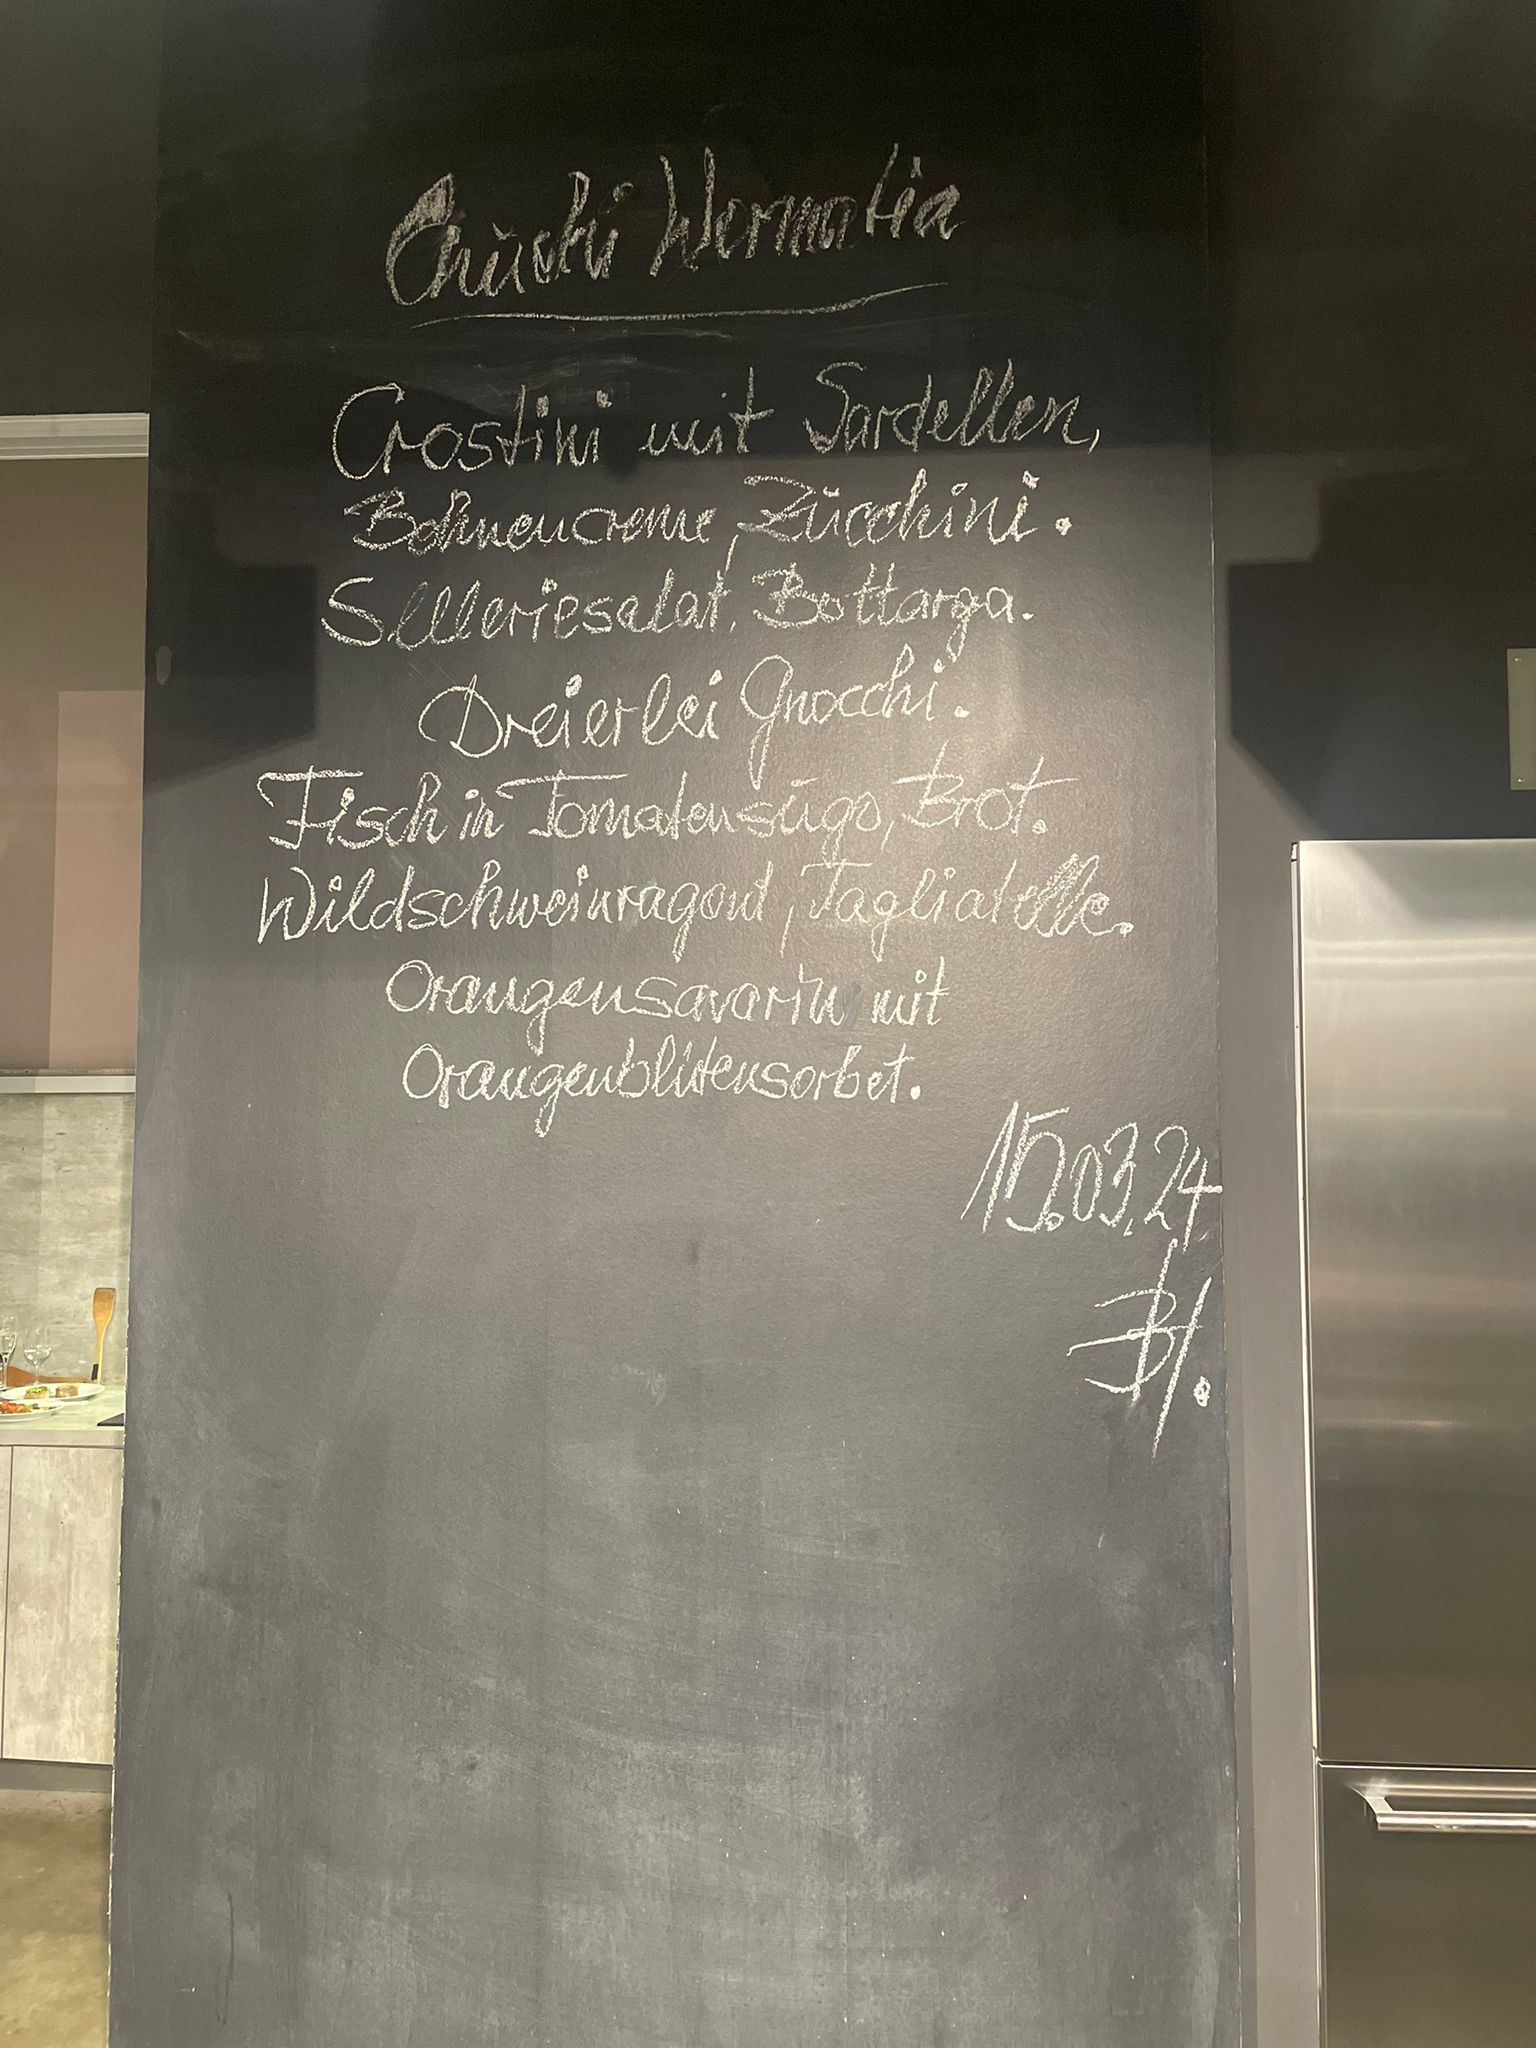 Chuchi Wormatia
Crostini mit Sardellen,
Bohnencreme, Zucchini.
Selleriesalat, Bottarga.
Dreierlei Gnocchi.
Fisch in Tomatensugo, Brot.
Wildschweinragout, Tagliatelle.
Orangensavarin mit
Orangenblütensorbet.
15.03.24